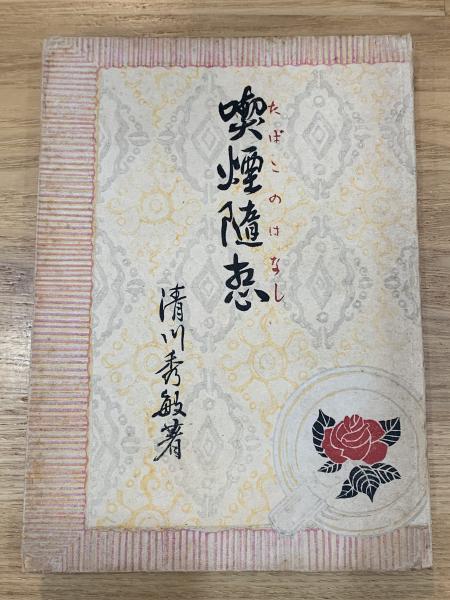 たばこのはなし
喫煙隨想
清川秀敏著